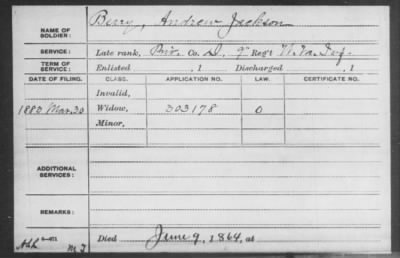 Berry, Andrew Jackson
NAME OF SOLDIER:
SERVICE: Late rank, Priv. Co. D, 9" Reg't W. Va. Inf.
TERM OF SERVICE: Enlisted , 1 Discharged , 1
DATE OF FILING. CLASS. APPLICATION NO. LAW. CERTIFICATE NO.
Invalid,
1883 Mar. 30 Widow, 303178 O
Minor,
ADDITIONAL SERVICES:
REMARKS:
Died June 9, 1864, at